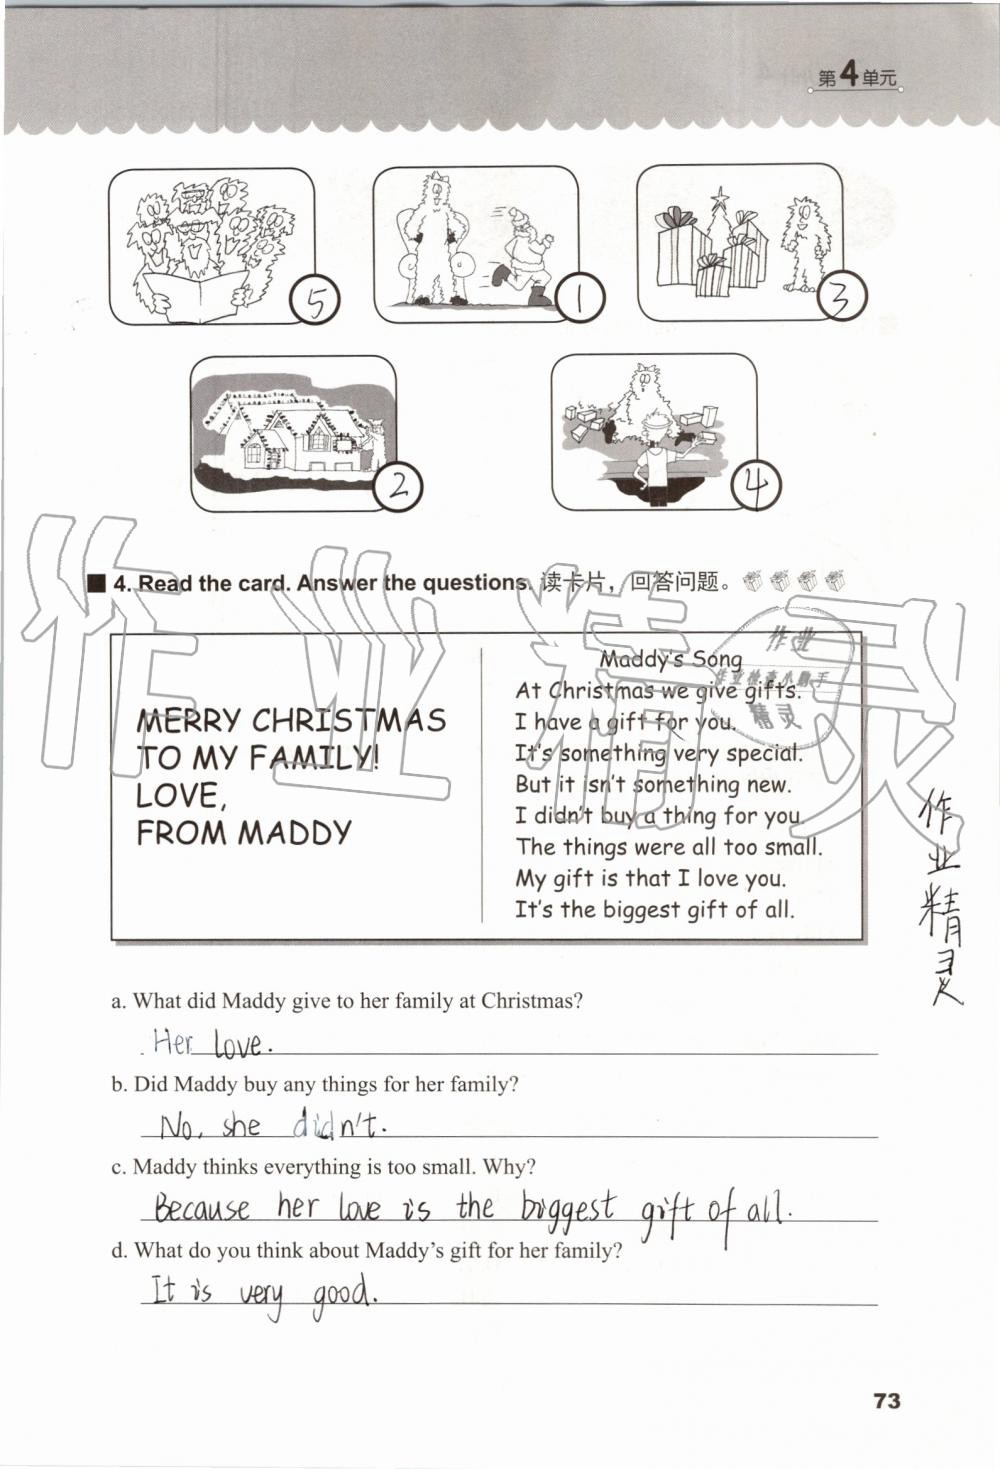 第4单元
5
1
3
2
4
4. Read the card. Answer the questions. 读卡片，回答问题。
MERRY CHRISTMAS
TO MY FAMILY!
LOVE,
FROM MADDY
Maddy's Song
At Christmas we give gifts.
I have a gift for you.
It's something very special.
But it isn't something new.
I didn't buy a thing for you.
The things were all too small.
My gift is that I love you.
It's the biggest gift of all.
作业
作业检查小助手
精灵
作业精灵
作业精灵
a. What did Maddy give to her family at Christmas?
Her love.
b. Did Maddy buy any things for her family?
No, she didn't.
c. Maddy thinks everything is too small. Why?
Because her love is the biggest gift of all.
d. What do you think about Maddy's gift for her family?
It is very good.
73